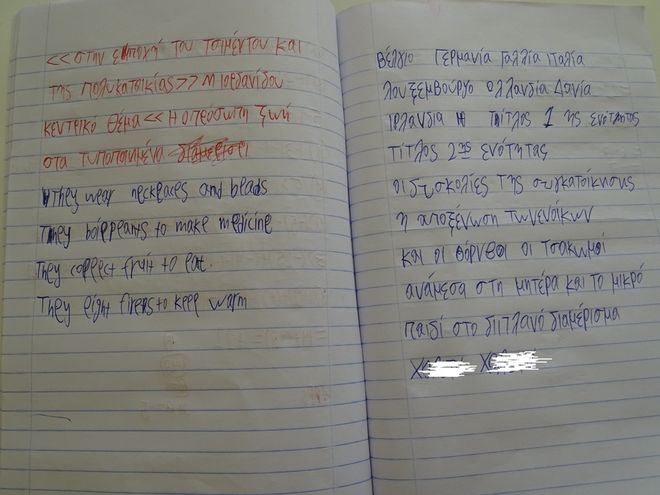 <<στην εποχή του τσιμέντου και
της πολυκατοικίας>> Μ ιορδανίδου
κεντρικο θέμα << Η απρόσωπη ζωή
στα τυποποιημένα
They wear necklaces and beads
They boil plants to make medicine
They collect fruit to eat.
They light fires to keep warm
Βέλγιο Γερμανία Γαλλία ιταλία
λουξεμβούργο ολλανδία Δανία
ιρλανδια Η τίτλος 1 της ενότητας
τίτλος 2ης ενότητας
οι δυσκολίες της συγκατοίκησης
η αποξένωση των ενοίκων
και οι θόρυβοι οι τσακωμοί
ανάμεσα στη μητέρα και το μικρό
παιδί στο διπλανό διαμέρισμα